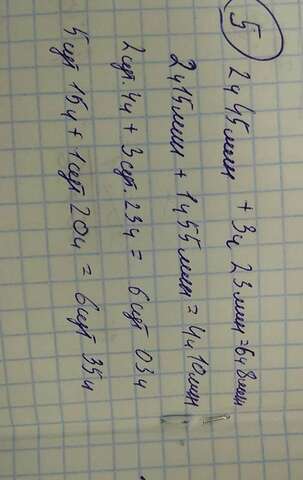 5
2ч 45мин + 3ч 23мин = 6ч 8мин
2ч 15мин + 1ч 55мин = 4ч 10мин
2сут. 4ч + 3сут. 23ч = 6сут 03ч
5сут 15ч + 1сут 20ч = 6сут 35ч